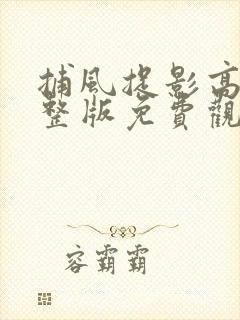 捕風捉影高
整版免費觀
容霸霸